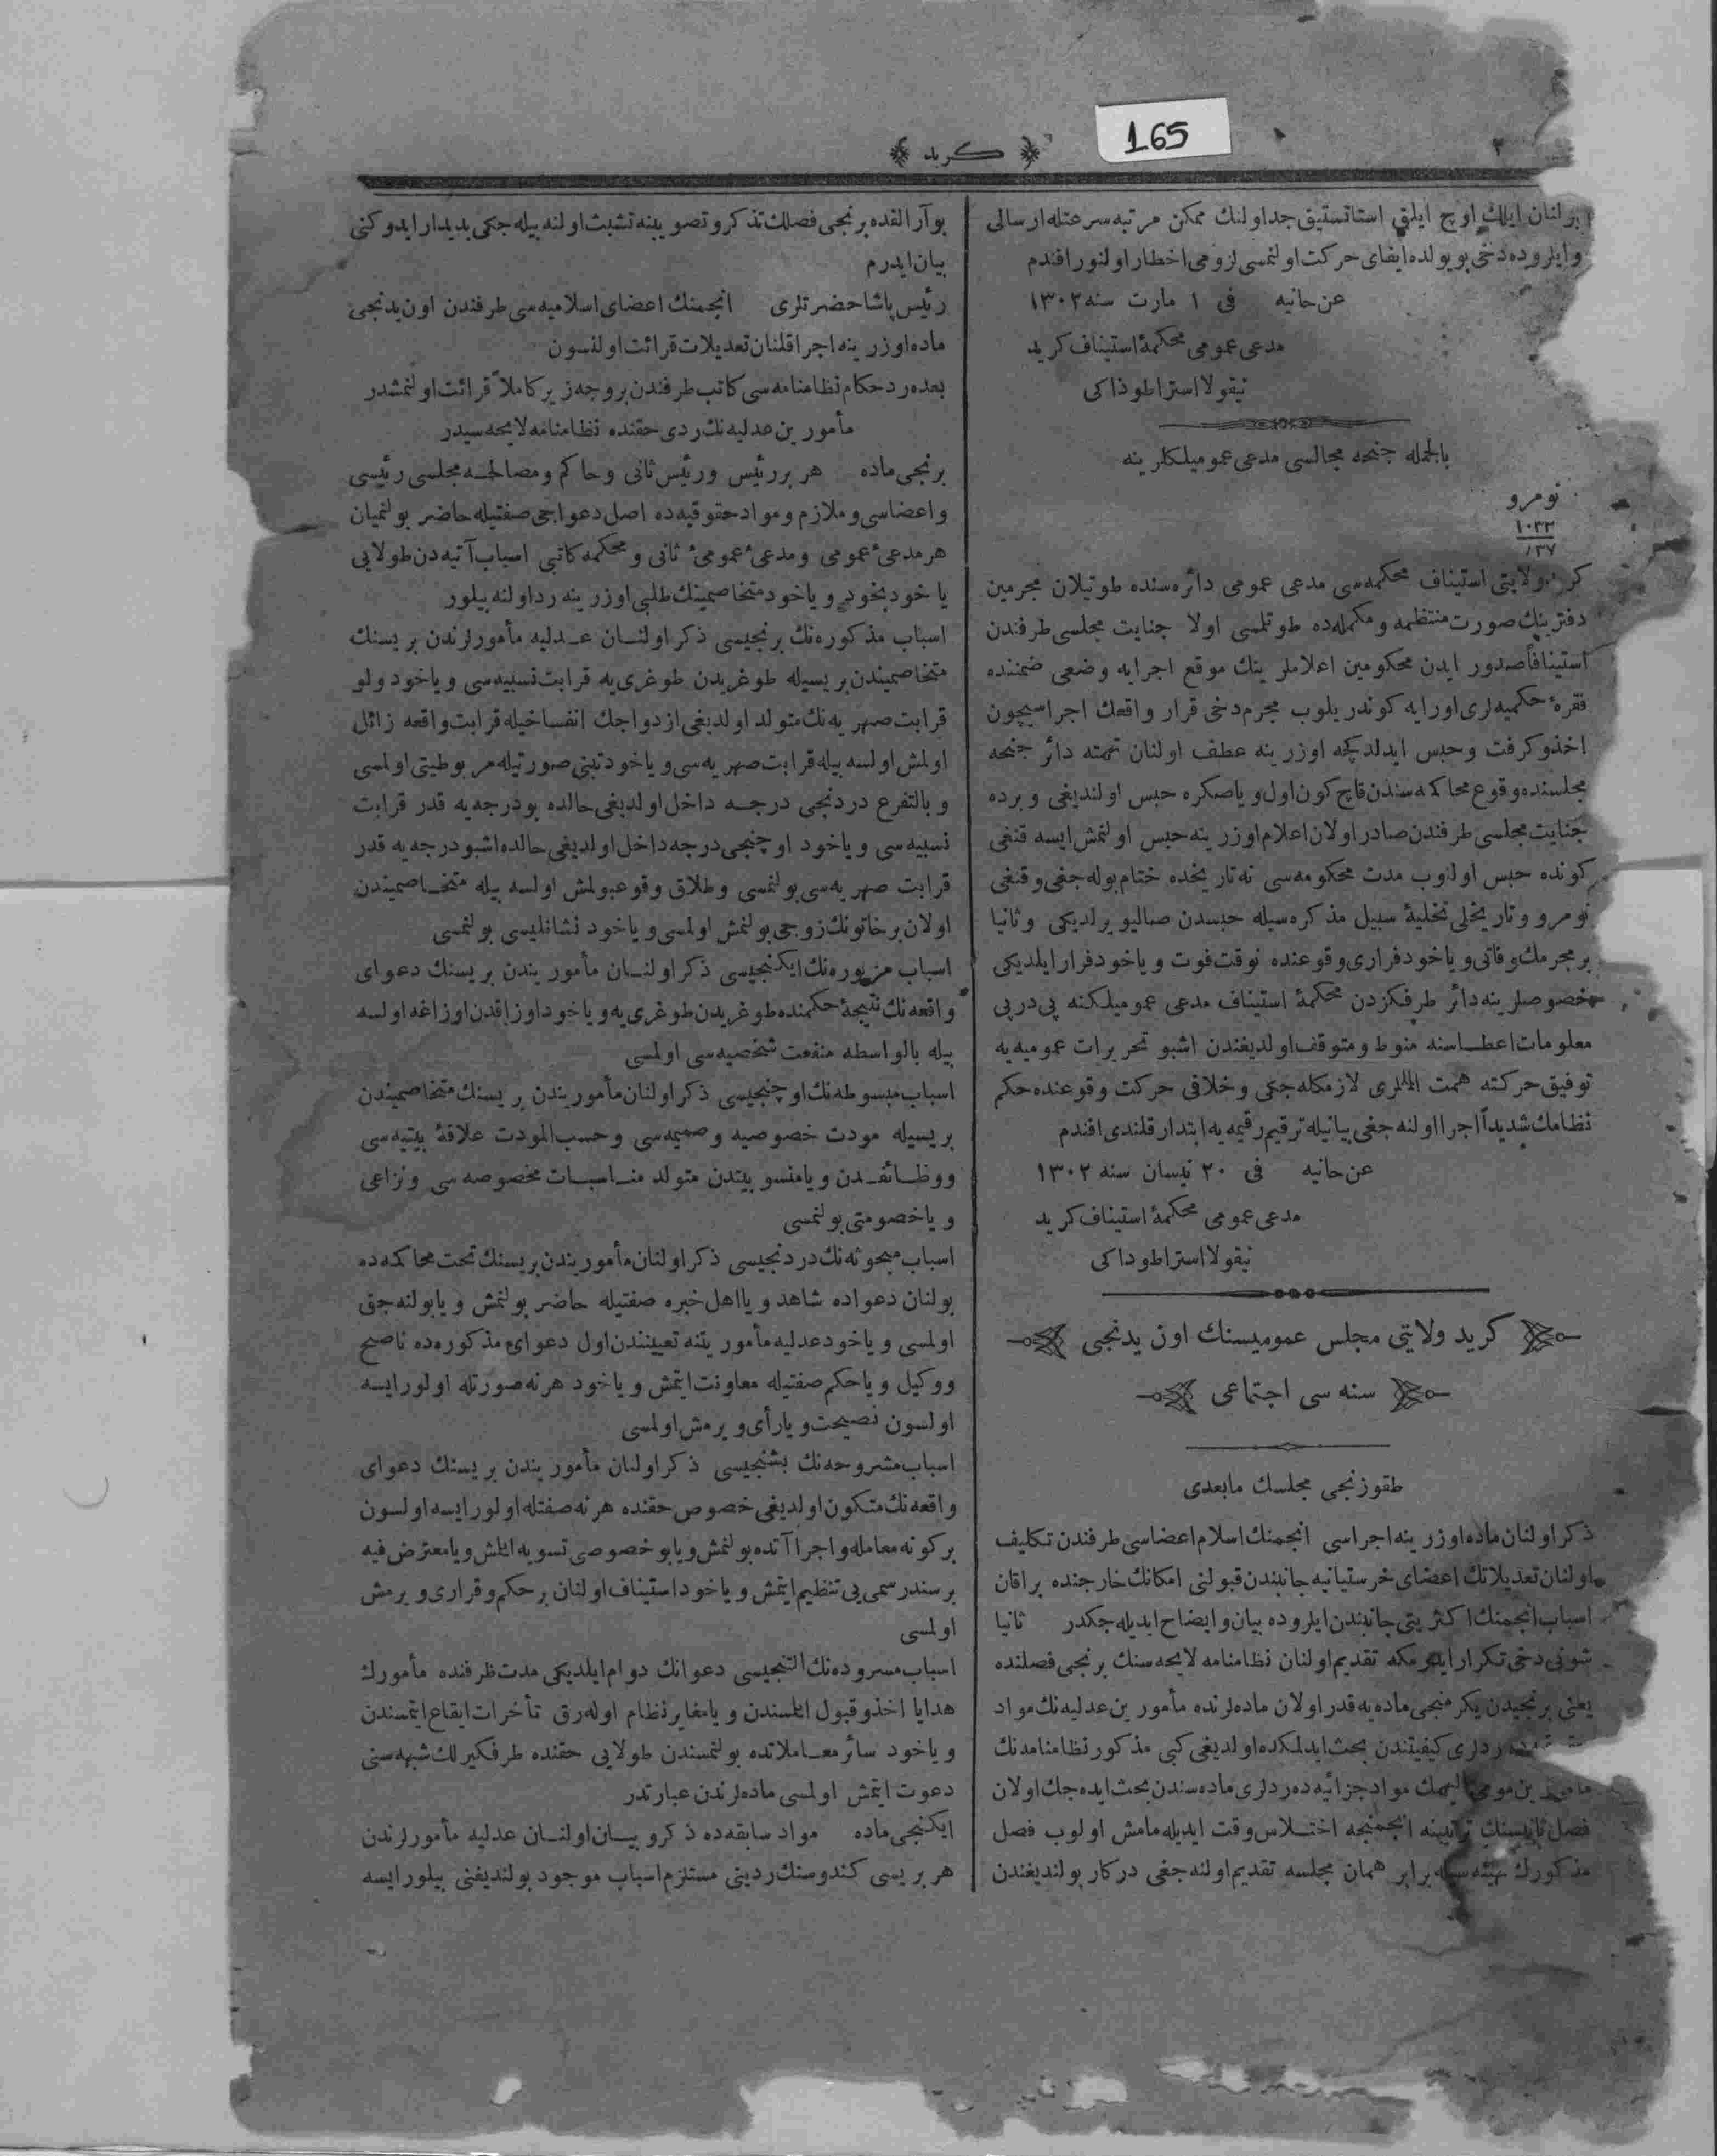 165
٢
كريد
بولنان ايلك اوچ ايلق استاتستيق جداولنك ممكن مرتبه سرعتله ارسالى
و ايلروده دخى بويولده ايفاى حركت اولنمسى لزومى اخطار اولنور افندم
عن حانيه فى ١ مارت سنه ١٣٠٢
مدعى عمومى محكمۀ استيناف كريد
نيقولا استراطوذاكى
بالجمله جنحه مجالسى مدعى عموميلكلرينه
نومرو
١٠٣٣
١٣٧
ولايتى استيناف محكمه سى مدعى عمومى دائره سنده طوتيلان مجرمين
دفترينك صورت منتظمه و مكمله ده طوتلمسى اولا جنايت مجلسى طرفندن
استينافاً صدور ايدن محكومين اعلاملرينك موقع اجرايه وضعى ضمننده
فقرۀ حكميه لرى اورايه كوندريلوب مجرم دخى قرار واقعك اجراسيچون
اخذ و كرفت و حبس ايدلدكچه اوزرينه عطف اولنان تهمته دائر جنحه
مجلسنده وقوع محاكمه سندن قاچ كون اول و ياصكره حبس اولنديغى و برده
جنايت مجلسى طرفندن صادر اولان اعلام اوزرينه حبس اولنمش ايسه قنغى
كونده حبس اولنوب مدت محكومه سى نه تاريخده ختام بوله جغى و قنغى
نومرو و تاريخلى تخليۀ سبيل مذكره سيله حبسدن صاليويرلديكى و ثانيا
بر مجرمك وفاتى و ياخود فرارى وقوعنده نوقت فوت و ياخود فرار ايلديكى
خصوصلرينه دائر طرفكزدن محكمۀ استيناف مدعى عموميلكنه پى درپى
معلومات اعطاسنه منوط و متوقف اولديغندن اشبو تحريرات عموميه يه
توفيق حركته همت اللرى لازمكله جكى و خلافى حركت وقوعنده حكم
نظامك شديداً اجرا اولنه جغى بيانيله ترقيم رقيمه يه ابتدار قلندى افندم
عن حانيه فى ٢٠ نيسان سنه ١٣٠٢
مدعى عمومى محكمۀ استيناف كريد
نيقولا استراطوداكى
كريد ولايتى مجلس عموميسنك اون يدنجى
سنه سى اجتماعى
طقوزنجى مجلسك مابعدى
ذكر اولنان ماده اوزرينه اجراسى انجمنك اسلام اعضاسى طرفندن تكليف
اولنان تعديلاتك اعضاى خرستيانيه جانبندن قبولنى امكانك خارجنده براقان
اسباب انجمنك اكثريتى جانبندن ايلروده بيان و ايضاح ايديله جكدر ثانيا
شونى دخى تكرار ايدرمكه تقديم اولنان نظامنامه لايحه سنك برنجى فصلنده
يعنى برنجيدن يكرمنجى ماده يه قدر اولان ماده لرنده مأمورين عدليه نك مواد
ردلرى كيفيتندن بحث ايدلمكده اولديغى كبى مذكور نظامنامه نك
مواد جزائيه ده ردلرى ماده سندن بحث ايده جك اولان
فصل ثانيسنك ترتيبنه انجمنجه اختلاس وقت ايديله مامش اولوب فصل
مذكورك برابر همان مجلسه تقديم اولنه جغى دركار بولنديغندن
بوآرالقده برنجى فصلك تذكر و تصويبنه تشبث اولنه بيله جكى بديدار ايدوكنى
بيان ايدرم
رئيس پاشا حضرتلرى انجمنك اعضاى اسلاميه سى طرفندن اون يدنجى
ماده اوزرينه اجرا قلنان تعديلات قرائت اولنسون
بعده رد حكام نظامنامه سى كاتب طرفندن بروجه زير كاملاً قرائت اولنمشدر
مأمورين عدليه نك ردى حقنده نظامنامه لايحه سيدر
برنجى ماده هر بر رئيس و رئيس ثانى و حاكم و مصالحه مجلسى رئيسى
و اعضاسى و ملازم و مواد حقوقيه ده اصل دعواجى صفتيله حاضر بولنميان
هر مدعئ عمومى و مدعئ عمومئ ثانى و محكمه كاتبى اسباب آتيه دن طولايى
ياخود بخود و ياخود متخاصمينك طلبى اوزرينه رد اولنه بيلور
اسباب مذكوره نك برنجيسى ذكر اولنان عدليه مأمورلرندن بريسنك
متخاصميندن بريسيله طوغريدن طوغرى يه قرابت نسبيه سى و ياخود ولو
قرابت صهريه نك متولد اولديغى ازدواجك انفساخيله قرابت واقعه زائل
اولمش اولسه بيله قرابت صهريه سى و ياخود تبنى صورتيله مربوطيتى اولمسى
و بالتفرع دردنجى درجه داخل اولديغى حالده بودرجه يه قدر قرابت
نسبيه سى و ياخود اوچنجى درجه داخل اولديغى حالده اشبو درجه يه قدر
قرابت صهريه سى بولنمسى و طلاق وقوعبولمش اولسه بيله متخاصميندن
اولان بر خاتونك زوجى بولنمش اولمسى و ياخود نشانليسى بولنمسى
اسباب مزبوره نك ايكنجيسى ذكر اولنان مأموريندن بريسنك دعواى
واقعه نك نتيجۀ حكمنده طوغريدن طوغرى يه و ياخود اوزاقدن اوزاغه اولسه
بيله بالواسطه منفعت شخصيه سى اولمسى
اسباب مبسوطه نك اوچنجيسى ذكر اولنان مأموريندن بريسنك متخاصميندن
بريسيله مودت خصوصيه و صميمه سى و حسب المودت علاقۀ بيتيه سى
و وظائفدن و يامنسوبيتدن متولد مناسبات مخصوصه سى و نزاعى
و ياخصومتى بولنمسى
اسباب مبحوثه نك دردنجيسى ذكر اولنان مأموريندن بريسنك تحت محاكمه ده
بولنان دعواده شاهد و يا اهل خبره صفتيله حاضر بولنمش و يابولنه جق
اولمسى و ياخود عدليه مأموريتنه تعييندن اول دعواى مذكوره ده ناصح
و وكيل و ياحكم صفتيله معاونت ايتمش و ياخود هر نه صورتله اولورايسه
اولسون نصيحت و يارأى ويرمش اولمسى
اسباب مشروحه نك بشنجيسى ذكر اولنان مأموريندن بريسنك دعواى
واقعه نك متكون اولديغى خصوص حقنده هر نه صفتله اولورايسه اولسون
بركونه معامله و اجراآتده بولنمش و يابو خصوصى تسويه ايتمش و يامعترض فيه
برسند رسمى يى تنظيم ايتمش و ياخود استيناف اولنان بر حكم و قرارى ويرمش
اولمسى
اسباب مسروده نك التنجيسى دعوانك دوام ايلديكى مدت ظرفنده مأمورك
هدايا اخذ و قبول ايتمسندن و يامغاير نظام اوله رق تأخرات ايقاع ايتمسندن
و ياخود سائر معاملاتده بولنمسندن طولايى حقنده طرفكيرلك شبهه سنى
دعوت ايتمش اولمسى ماده لرندن عبارتدر
ايكنجى ماده مواد سابقه ده ذكر و بيان اولنان عدليه مأمورلرندن
هر بريسى كندوسنك ردينى مستلزم اسباب موجود بولنديغنى بيلورايسه